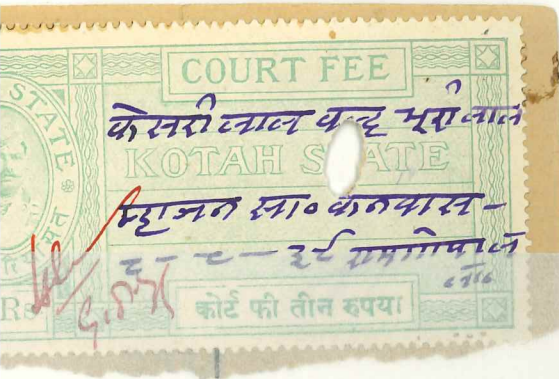 COURT FEE
STATE
केसरीलाल वल्द भूरालाल
KOTAH STATE
म्हाजन सा० कनवास -
रामगोपाल
Rs
कोर्ट फी तीन रुपया